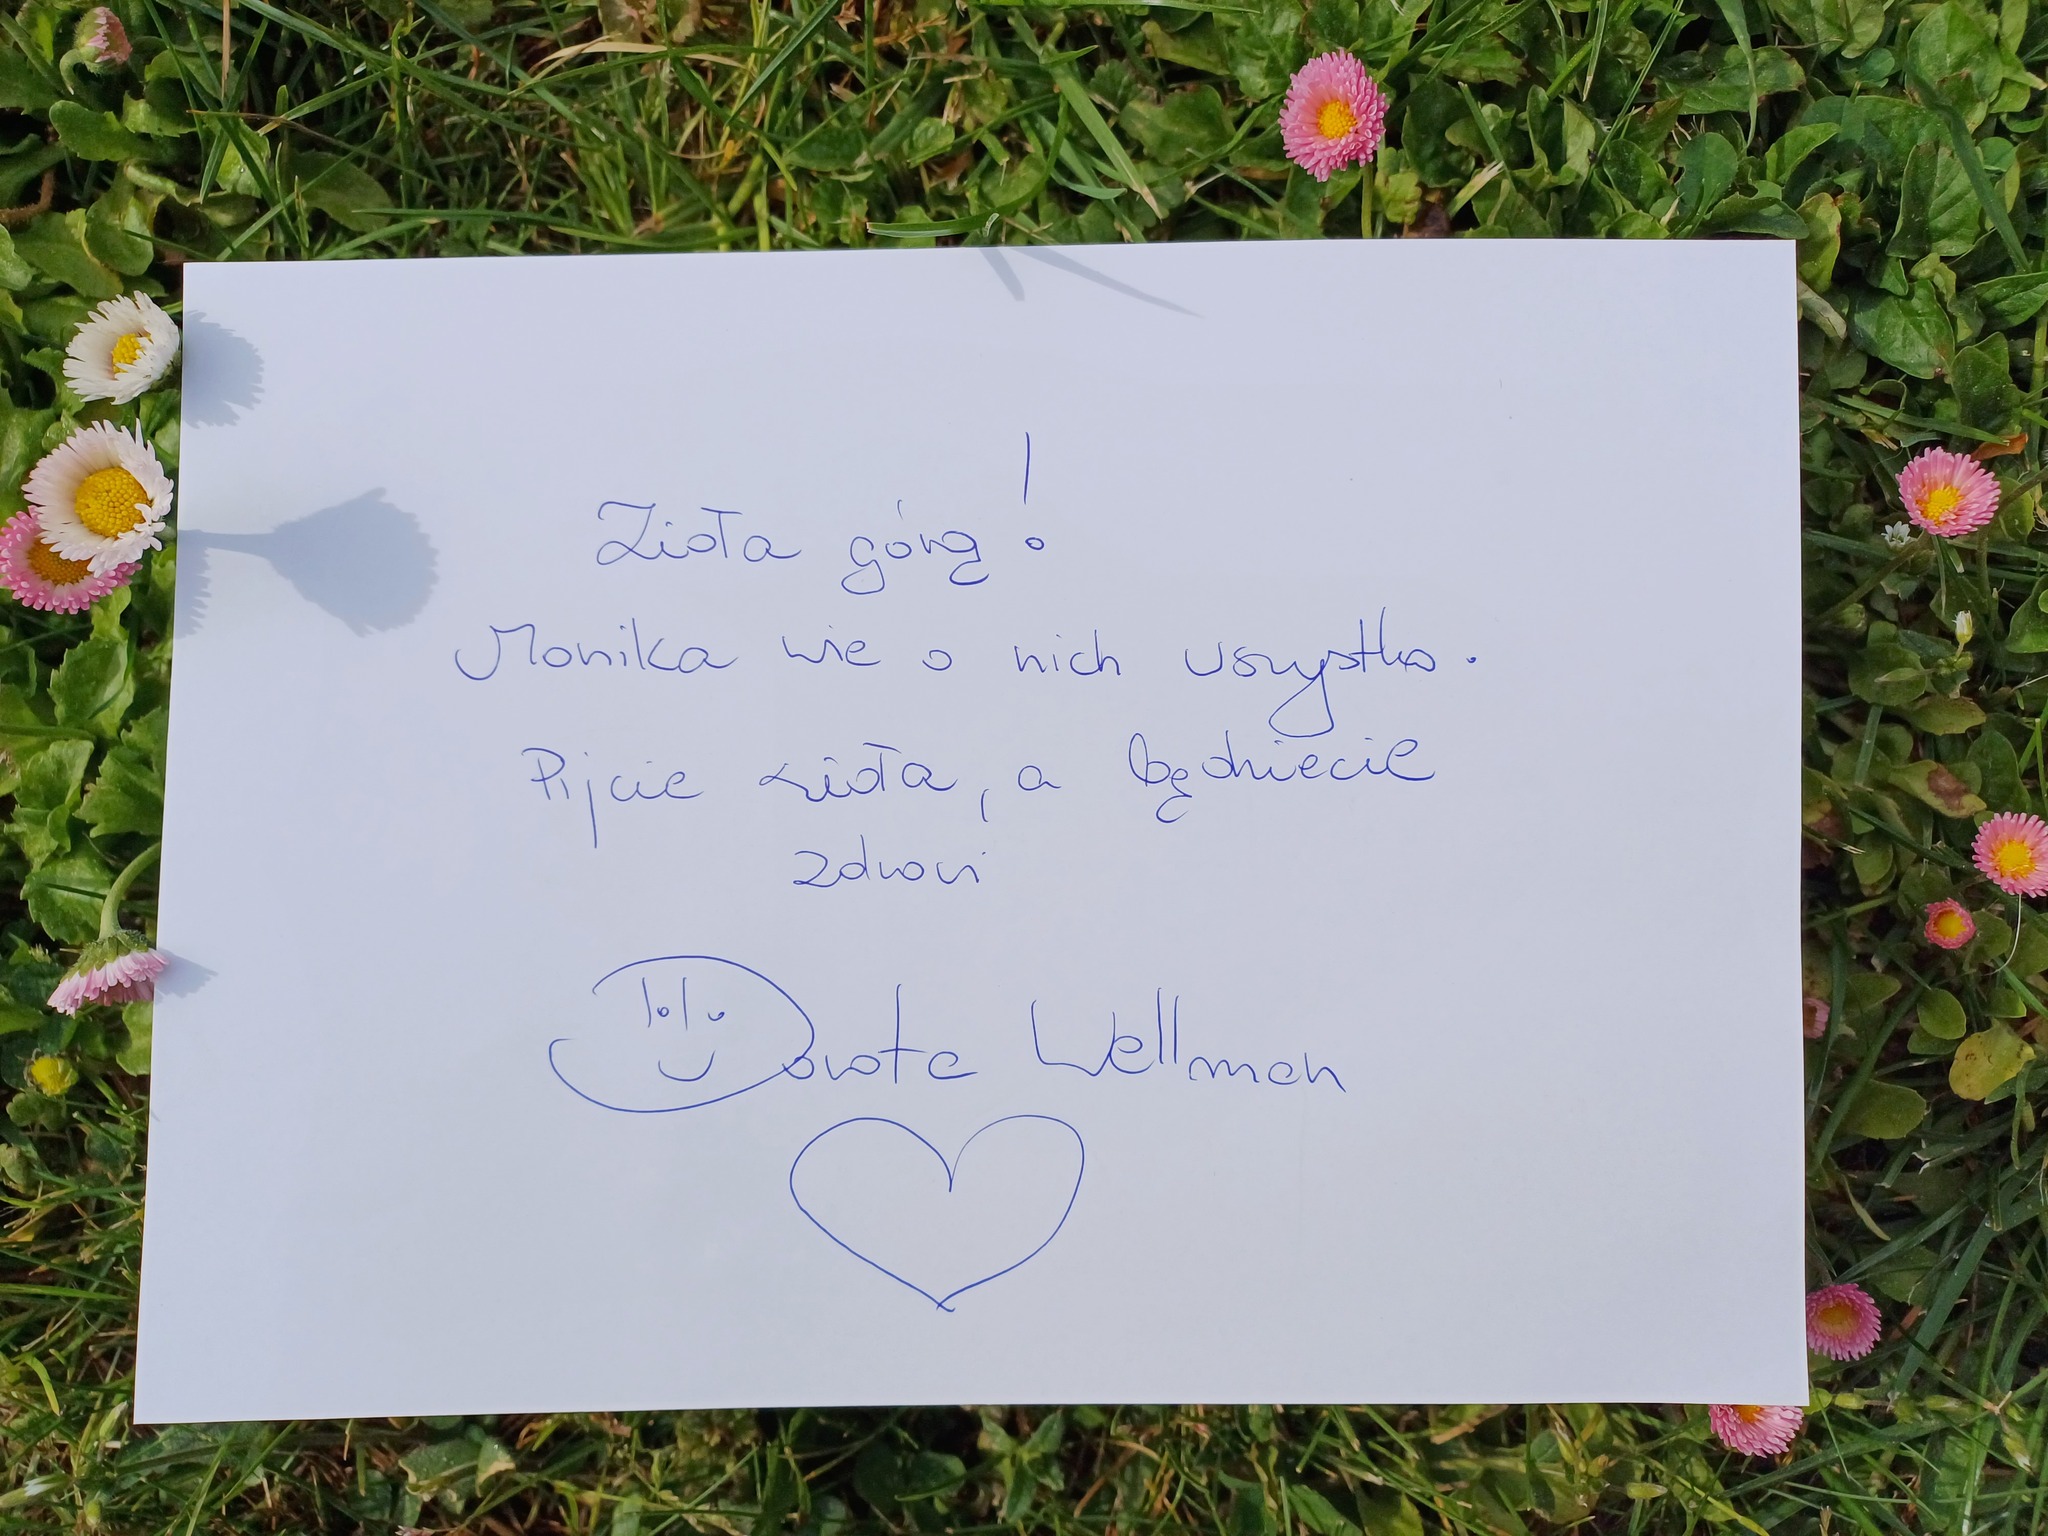 Zioła górą!
Monika wie o nich wszystko.
Pijcie zioła, a będziecie
zdrowi
Dorota Wellman